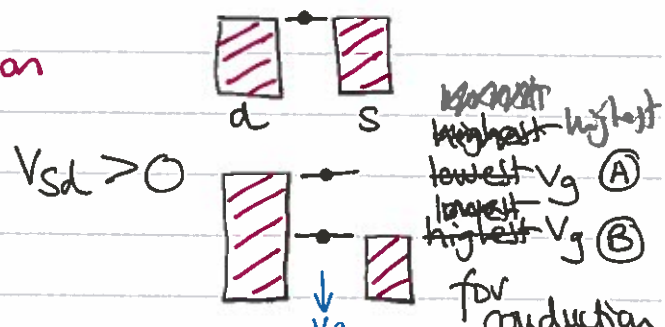 on
d s
highest
highest
V_sd > 0
lowest V_g (A)
lowest
highest V_g (B)
for
conduction